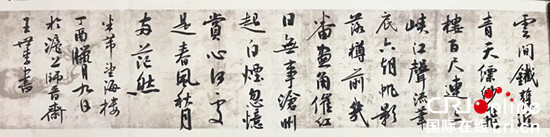 雲間鐵甕近
青天縹緲飛
樓百尺連三
峽江聲流筆
底六朝帆影
落樽前幾
番畫角催紅
日無事滄州
起白煙忽憶
賞心何處
是春風秋月
兩茫然
米芾望海樓
丁酉臘月九日
於
王書
CRI online
国际在线